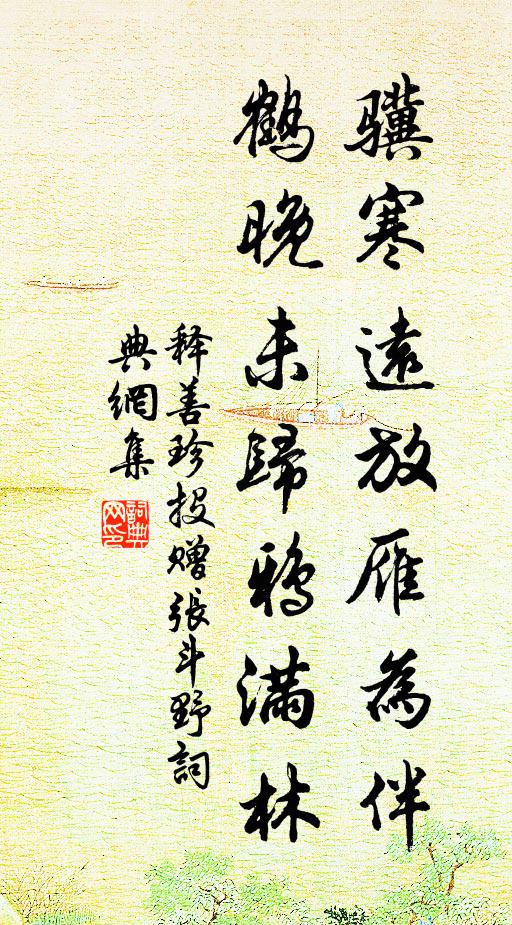 骥寒遠放雁為伴
鶴晚未歸鴉滿林
释善珍投赠張斗野詞
典網集
詞典
网印